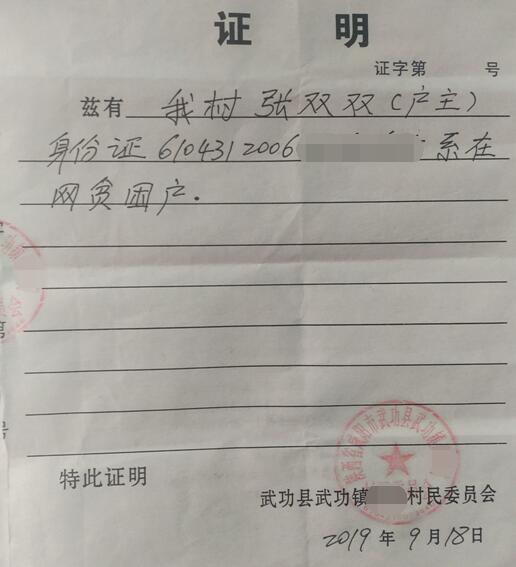 证 明
证字第 号
兹有 我村张双双（户主）
身份证6104312006 系在
网贫困户.
特此证明
陕西省咸阳市武功县武功镇
武功县武功镇 村民委员会
2019 年 9 月 18 日
第
号